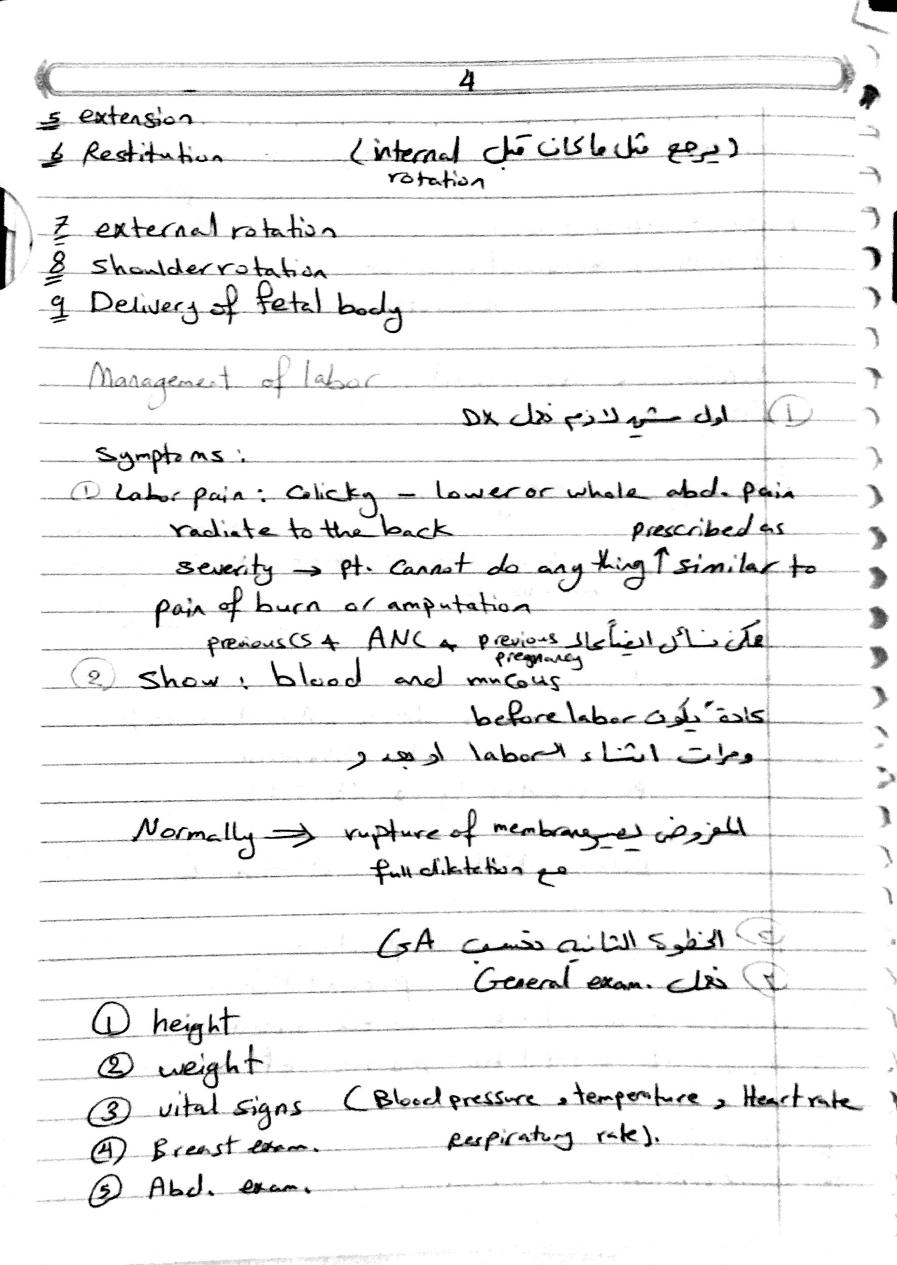 4
5 extension
6 Restitution (يرجع مثل ما كان قبل internal
rotation)
7 external rotation
8 shoulder rotation
9 Delivery of fetal body
Management of labor
① اول شي لازم نعمل DX
Symptoms:
① Labor pain: Colicky – lower or whole abd. pain
radiate to the back prescribed as
severity → pt. cannot do any thing ↑ similar to
pain of burn or amputation
ممكن نسأل ايضاً عالـ previous pregnancy + ANC + previous CS
② Show: blood and mucous
عادةً يكون before labor
ومرات اثناء الـ labor او بعدو
Normally ⇒ rupture of membrane المفروض يصير
مع full dilatation
② الخطوة الثانية نحسب GA
③ نعمل General exam.
① height
② weight
③ vital signs (Blood pressure, temperature, Heart rate
Respiratory rate).
④ Breast exam.
⑤ Abd. exam.